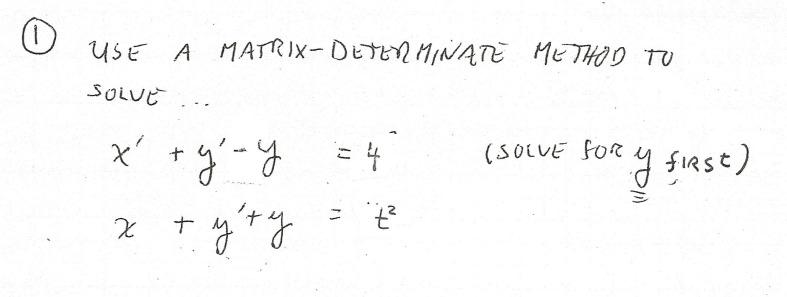 ① USE A MATRIX-DETERMINATE METHOD TO
SOLVE ...
x' + y' - y = 4 (SOLVE FOR y FIRST)
x + y' + y = t²